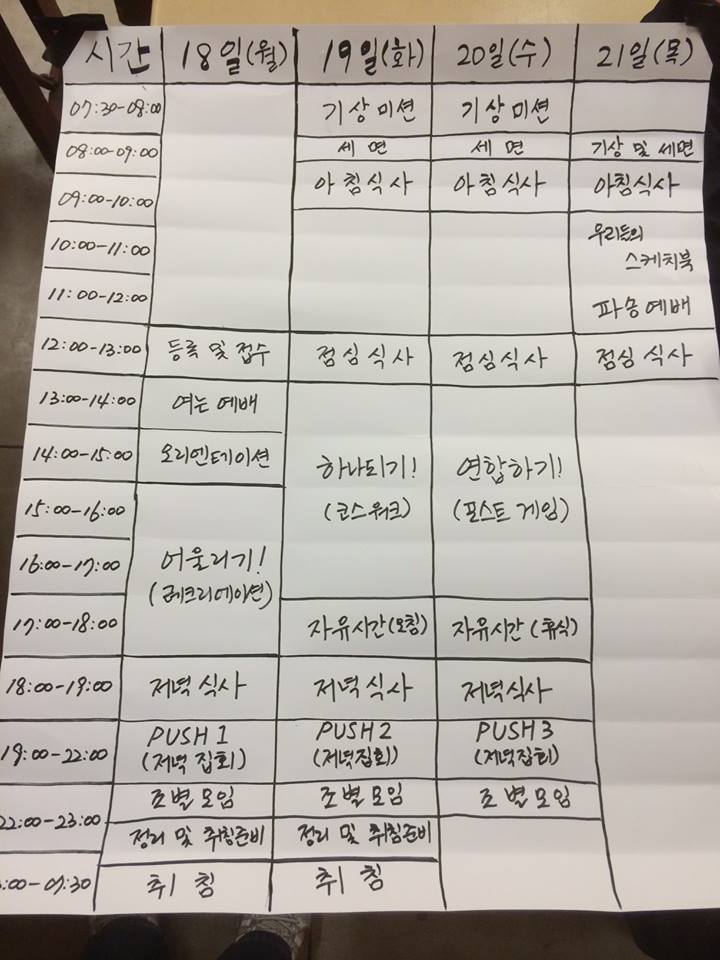 시간 18일(월) 19일(화) 20일(수) 21일(목)
07:30-08:00 기상미션 기상미션
08:00-09:00 세면 세면 기상 및 세면
09:00-10:00 아침식사 아침식사 아침식사
10:00-11:00 우리들의
스케치북
11:00-12:00 파송예배
12:00-13:00 등록 및 접수 점심식사 점심식사 점심식사
13:00-14:00 여는 예배
14:00-15:00 오리엔테이션 하나되기! 연합하기!
15:00-16:00 (코스워크) (포스트 게임)
16:00-17:00 어울리기!
(레크리에이션)
17:00-18:00 자유시간(오침) 자유시간(휴식)
18:00-19:00 저녁식사 저녁식사 저녁식사
19:00-22:00 PUSH 1 PUSH 2 PUSH 3
(저녁집회) (저녁집회) (저녁집회)
22:00-23:00 조별모임 조별모임 조별모임
정리 및 취침준비 정리 및 취침준비
:00-07:30 취침 취침